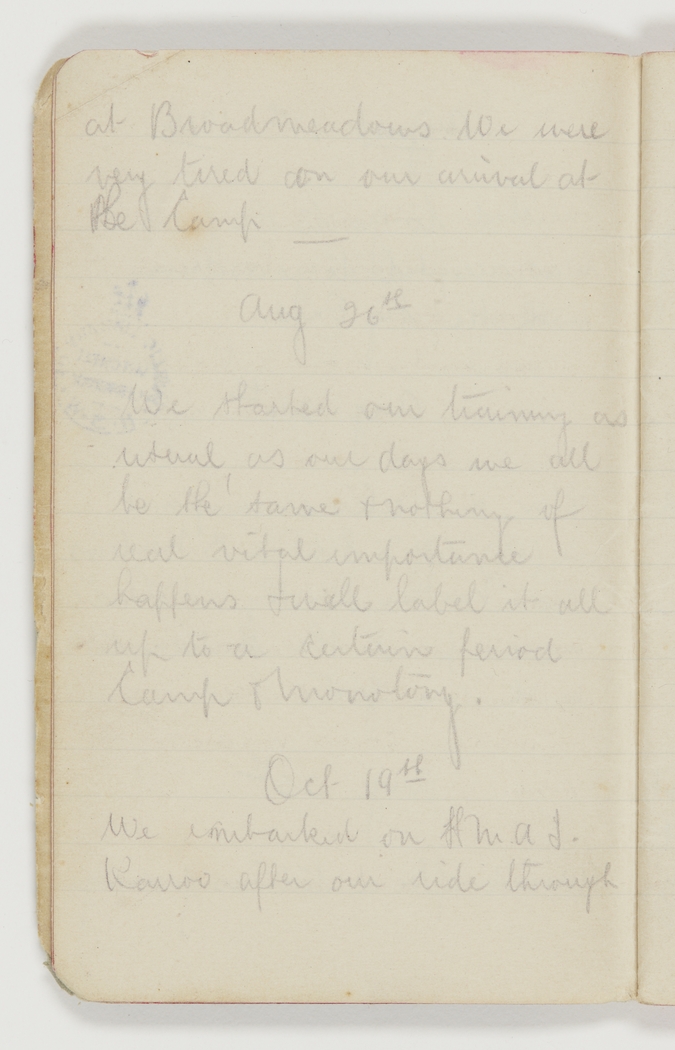 at Broadmeadows. We were
very tired on our arrival at
the Camp
Aug 26th
We started our training as
usual, as our days we all
be the same & nothing of
real vital importance
happens I will label it all
up to a certain period
Camp & Monotony.
Oct 19th
We embarked on H.M.A.T.
Karroo after our ride through